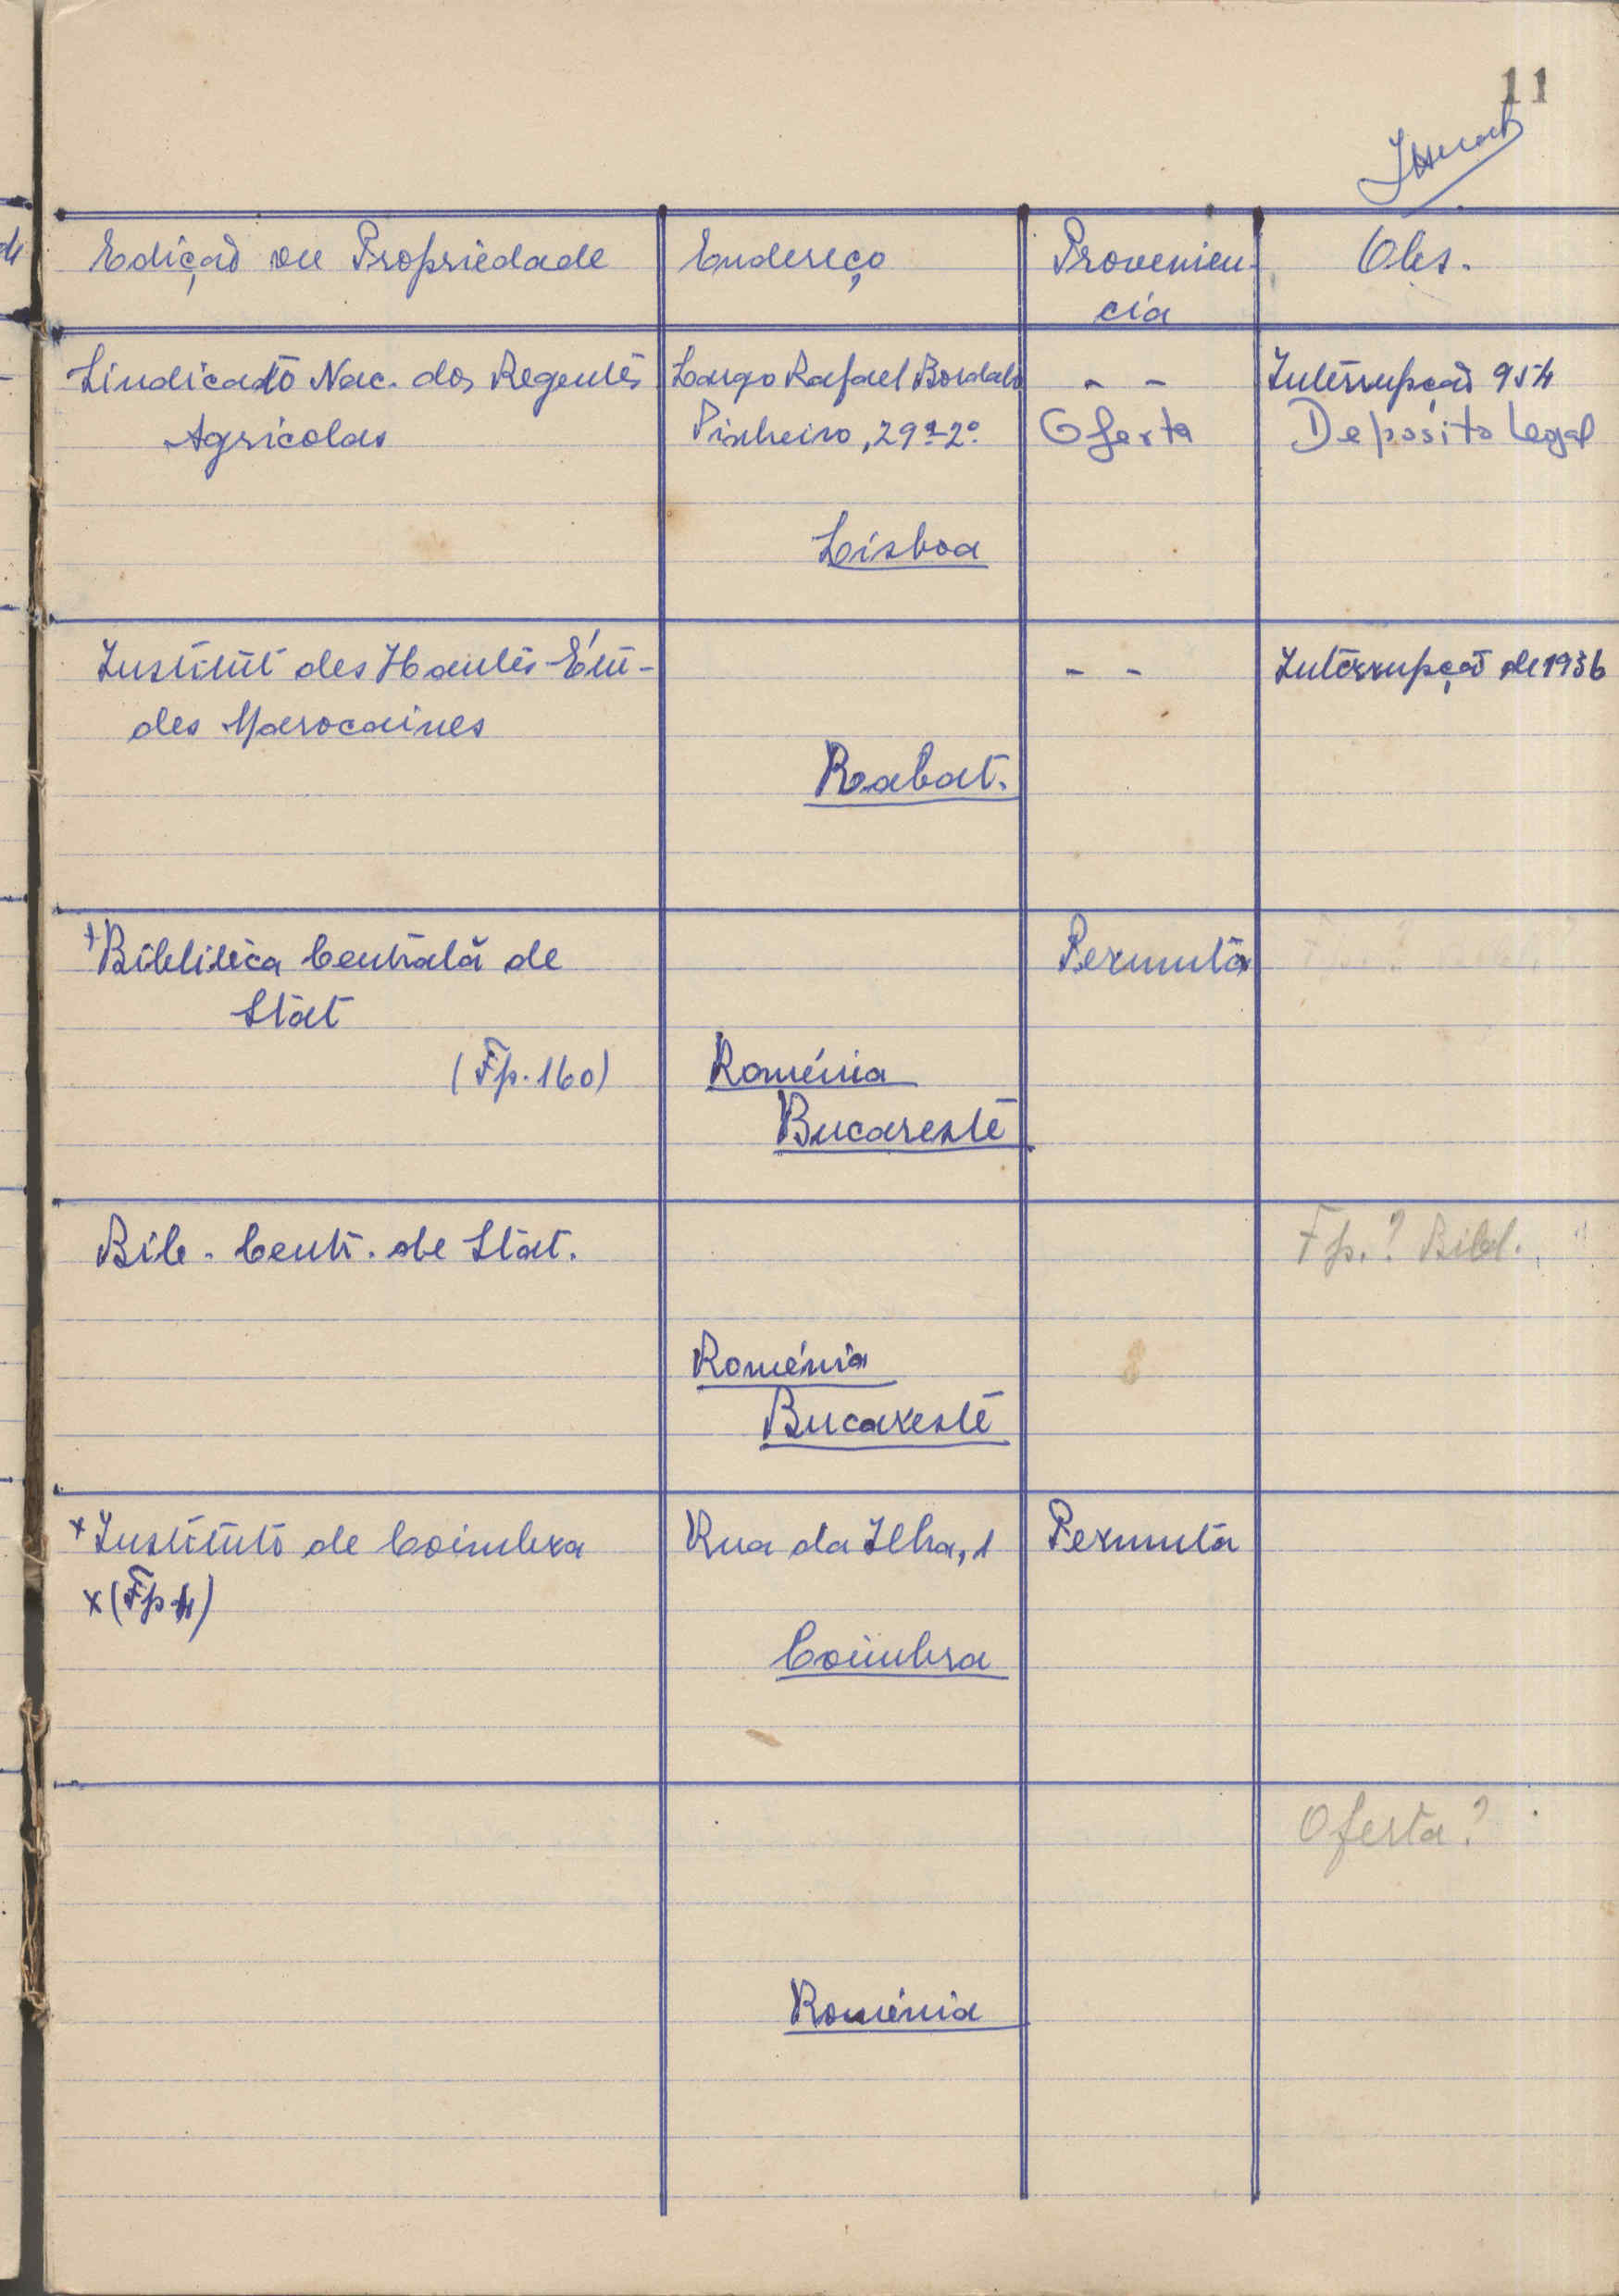 11
Edição ou Propriedade
Endereço
Provenien-
cia
Obs.
Sindicato Nac. dos Regentes
Agricolas
Largo Rafael Bordalo
Pinheiro, 29-2º
Lisboa
- -
Oferta
Interrupção 954
Deposito Legal
Institut des Hautes-Étu-
des Marocaines
Rabat.
- -
Interrupção de 1936
+ Biblioteca Centrală de
Stat
(Fp. 160)
Roménia
Bucareste
Permuta
Bib. Centr. de Stat.
Roménia
Bucareste
Fp.? Bibl.
x Instituto de Coimbra
x (Fp. 4)
Rua da Ilha, 1
Coimbra
Permuta
Roménia
Oferta?